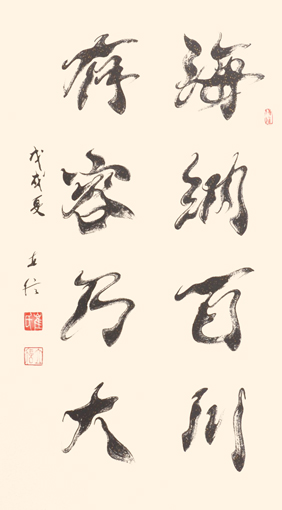 海納百川
有容乃大
戊戌夏